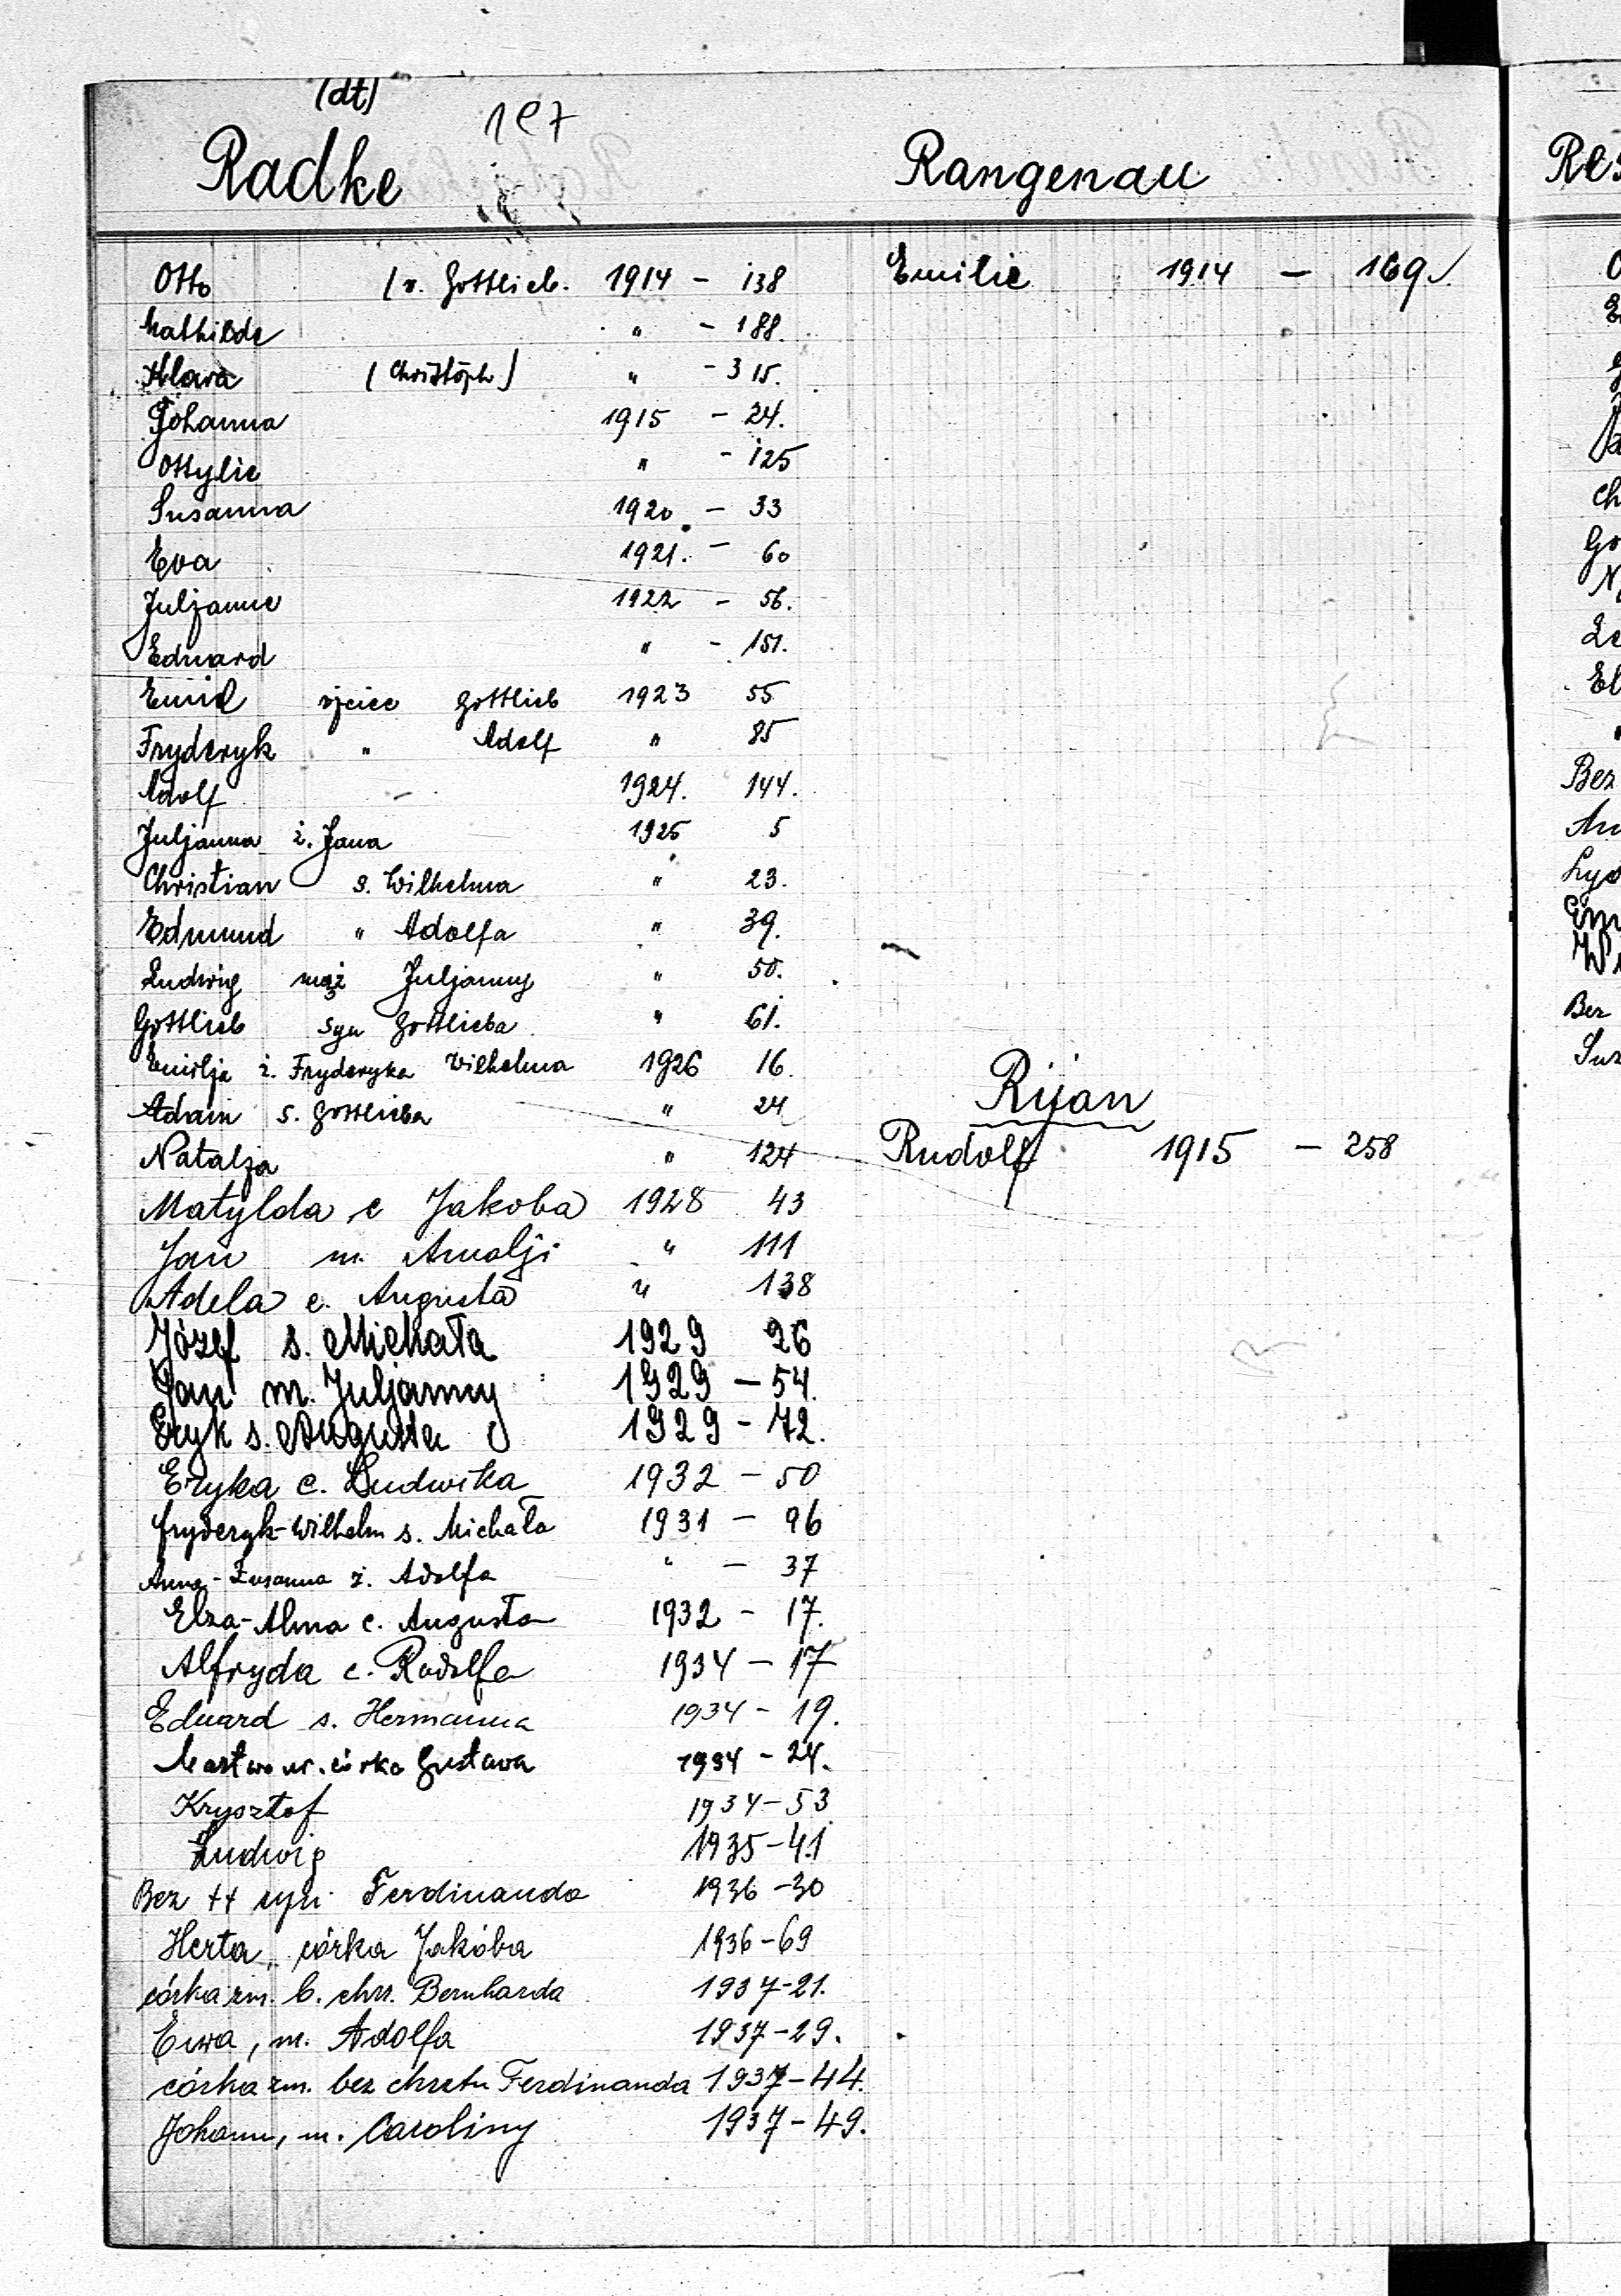 (dt)
107
Radke
Otto (v. Gottlieb. 1914 - 138
Mathilde " - 188.
Klara (Christoph) " - 315.
Johanna 1915 - 24.
Ottylie " - 125
Susanna 1920 - 33
Eva 1921. - 60
Juljanne 1922 - 56.
Eduard " - 151.
Emil ojciec Gottlieb 1923 55
Fryderyk " Adolf " 85
Adolf 1924. 144.
Juljanna ż. Jana 1925 5
Christian s. Wilhelma " 23.
Edmund " Adolfa " 39.
Ludwig mąż Juljanny " 50.
Gottlieb syn Gottlieba " 61.
Emilja ż. Fryderyka Wilhelma 1926 16.
Adam s. Gottlieba " 24
Natalja " 124
Matylda c Jakoba 1928 43
Jan m. Amalji " 111
Adela c. Augusta " 138
Józef s. Michała 1929 26
Jan m. Juljanny 1929 - 54.
Eryk s. Augusta 1929 - 72.
Eryka c. Ludwika 1932 - 50
Fryderyk-Wilhelm s. Michała 1931 - 96
Anna-Zusanna ż. Adolfa " - 37
Elza-Alma c. Augusta 1932 - 17.
Alfryda c. Rudolfa 1934 - 17
Eduard s. Hermanna 1934 - 19.
Martwo ur. córka Gustawa 1934 - 24.
Krysztof 1934 - 53
Ludwig 1935 - 41
Bez ++ syn Ferdinanda 1936 - 30
Herta, córka Jakóba 1936 - 69
córka zm. b. chrz. Bernharda 1937 - 21.
Ewa, m. Adolfa 1937 - 29.
córka zm. bez chrztu Ferdinanda 1937 - 44.
Johann, m. Caroliny 1937 - 49.
Rangenau
Emilie 1914 - 169
Rijan
Rudolf 1915 - 258
Res
Bez
Lyd
Bez